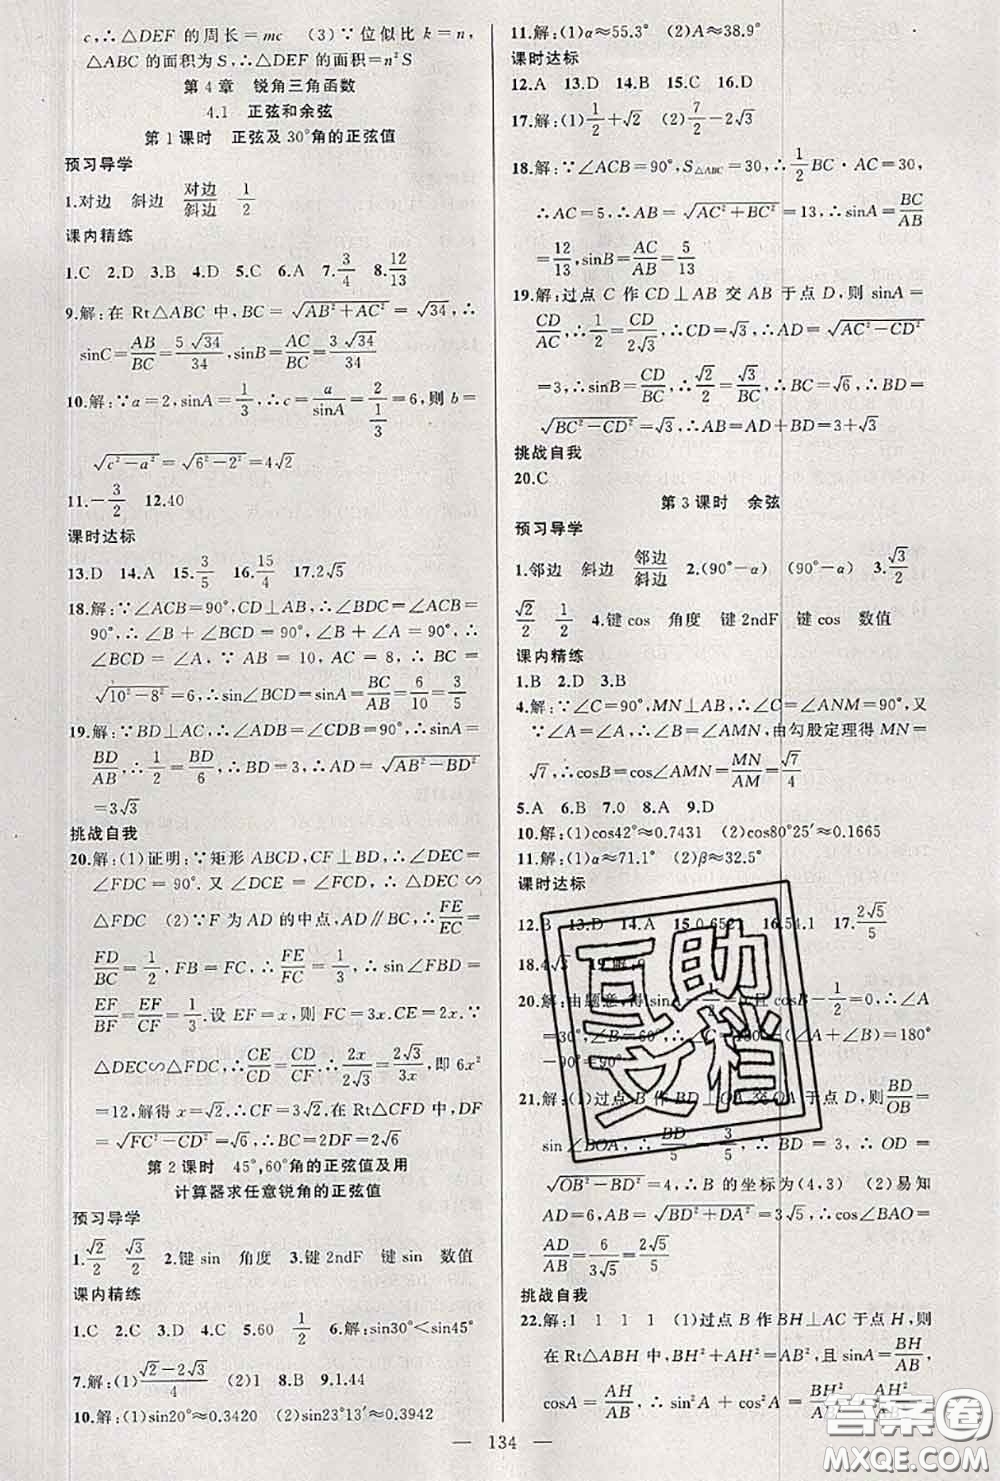 c,∴△DEF 的周长=mc (3)∵位似比 k=n,
△ABC 的面积为 S,∴△DEF 的面积=n²S
第4章 锐角三角函数
4.1 正弦和余弦
第1课时 正弦及30°角的正弦值
预习导学
1.对边 斜边 对边/斜边 1/2
课内精练
1.C 2.D 3.B 4.D 5.C 6.A 7.3/4 8.12/13
9.解:在 Rt△ABC 中,BC=√(AB²+AC²)=√34,∴
sinC=AB/BC=5√34/34,sinB=AC/BC=3√34/34
10.解:∵a=2,sinA=1/3,∴c=a/sinA=2/(1/3)=6,则 b=
√(c²-a²)=√(6²-2²)=4√2
11.-3/2 12.40
课时达标
13.D 14.A 15.3/5 16.15/4 17.2√5
18.解:∵∠ACB=90°,CD⊥AB,∴∠BDC=∠ACB=
90°,∴∠B+∠BCD=90°,∠B+∠A=90°,∴
∠BCD=∠A,∵AB=10,AC=8,∴BC=
√(10²-8²)=6,∴sin∠BCD=BC/AB=6/10=3/5
19.解:∵BD⊥AC,∴∠ADB=∠CDB=90°,∵sinA=
BD/AB,∴1/2=BD/6,∴BD=3,∴AD=√(AB²-BD²)
=3√3
挑战自我
20.解:(1)证明:∵矩形 ABCD,CF⊥BD,∴∠DEC=
∠FDC=90°.又∠DCE=∠FCD,∴△DEC∽
△FDC (2)∵F 为 AD 的中点,AD∥BC,∴FE/EC=
FD/BC=1/2,FB=FC,∴FE/FC=1/3,∴sin∠FBD=
EF/BF=EF/CF=1/3.设 EF=x,则 FC=3x,CE=2x.∵
△DEC∽△FDC,∴CE/CD=CD/CF,∴2x/2√3=2√3/3x,即 6x²
=12,解得 x=√2,∴CF=3√2.在 Rt△CFD 中,DF
=√(FC²-CD²)=√6,∴BC=2DF=2√6
第2课时 45°,60°角的正弦值及用
计算器求任意锐角的正弦值
预习导学
1.√2/2 √3/2 2.键 sin 角度 3.键 2ndF 键 sin 数值
课内精练
1.C 2.C 3.D 4.C 5.60 1/2 6.解:sin30°<sin45°
7.解:(1)(√2-2√3)/4 (2)1 8.B 9.1.44
10.解:(1)sin20°≈0.3420 (2)sin23°13′≈0.3942
11.解:(1)α≈55.3° (2)A≈38.9°
课时达标
12.A 13.D 14.A 15.C 16.D
17.解:(1)1/2+√2 (2)7/2
18.解:∵∠ACB=90°,S△ABC=30,∴1/2BC·AC=30,
∴AC=5,∴AB=√(AC²+BC²)=13,∴sinA=BC/AB
=12/13,sinB=AC/AB=5/13
19.解:过点 C 作 CD⊥AB 交 AB 于点 D,则 sinA=
CD/AC,∴1/2=CD/2√3,∴CD=√3,∴AD=√(AC²-CD²)
=3,∴sinB=CD/BC,∴√2/2=√3/BC,∴BC=√6,∴BD=
√(BC²-CD²)=√3,∴AB=AD+BD=3+√3
挑战自我
20.C
第3课时 余弦
预习导学
1.邻边 斜边 邻边/斜边 2.(90°-α) (90°-α) 3.√3/2
√2/2 1/2 4.键 cos 角度 键 2ndF 键 cos 数值
课内精练
1.B 2.D 3.B
4.解:∵∠C=90°,MN⊥AB,∴∠C=∠ANM=90°,又
∵∠A=∠A,∴∠B=∠AMN,由勾股定理得 MN=
√7,∴cosB=cos∠AMN=MN/AM=√7/4
5.A 6.B 7.0 8.A 9.D
10.解:(1)cos42°≈0.7431 (2)cos80°25′≈0.1665
11.解:(1)α≈71.1° (2)β≈32.5°
课时达标
12.B 13.D 14.A 16.54.1 17.2√5/5
18.4√3
20.解:由题意,得 sinA 且 cosB-1/2=0,∴∠A
=30°,∠B=60°,∴∠C=180°-(∠A+∠B)=180°
-90°=90°
21.解:(1)过点 B 作 BD⊥OA 交 OA 于点 D,则 BD/OB=
sin∠BOA,∴BD/5=3/5,∴BD=3,∴OD=
√(OB²-BD²)=4,∴B 的坐标为(4,3) (2)易知
AD=6,AB=√(BD²+DA²)=3√5,∴cos∠BAO=
AD/AB=6/3√5=2√5/5
挑战自我
22.解:1 1 1 1 (1)过点 B 作 BH⊥AC 于点 H,则
在 Rt△ABH 中,BH²+AH²=AB²,且 sinA=BH/AB,
cosA=AH/AB,∴
— 134 —
互助
文档
答案圈
MXQE.COM